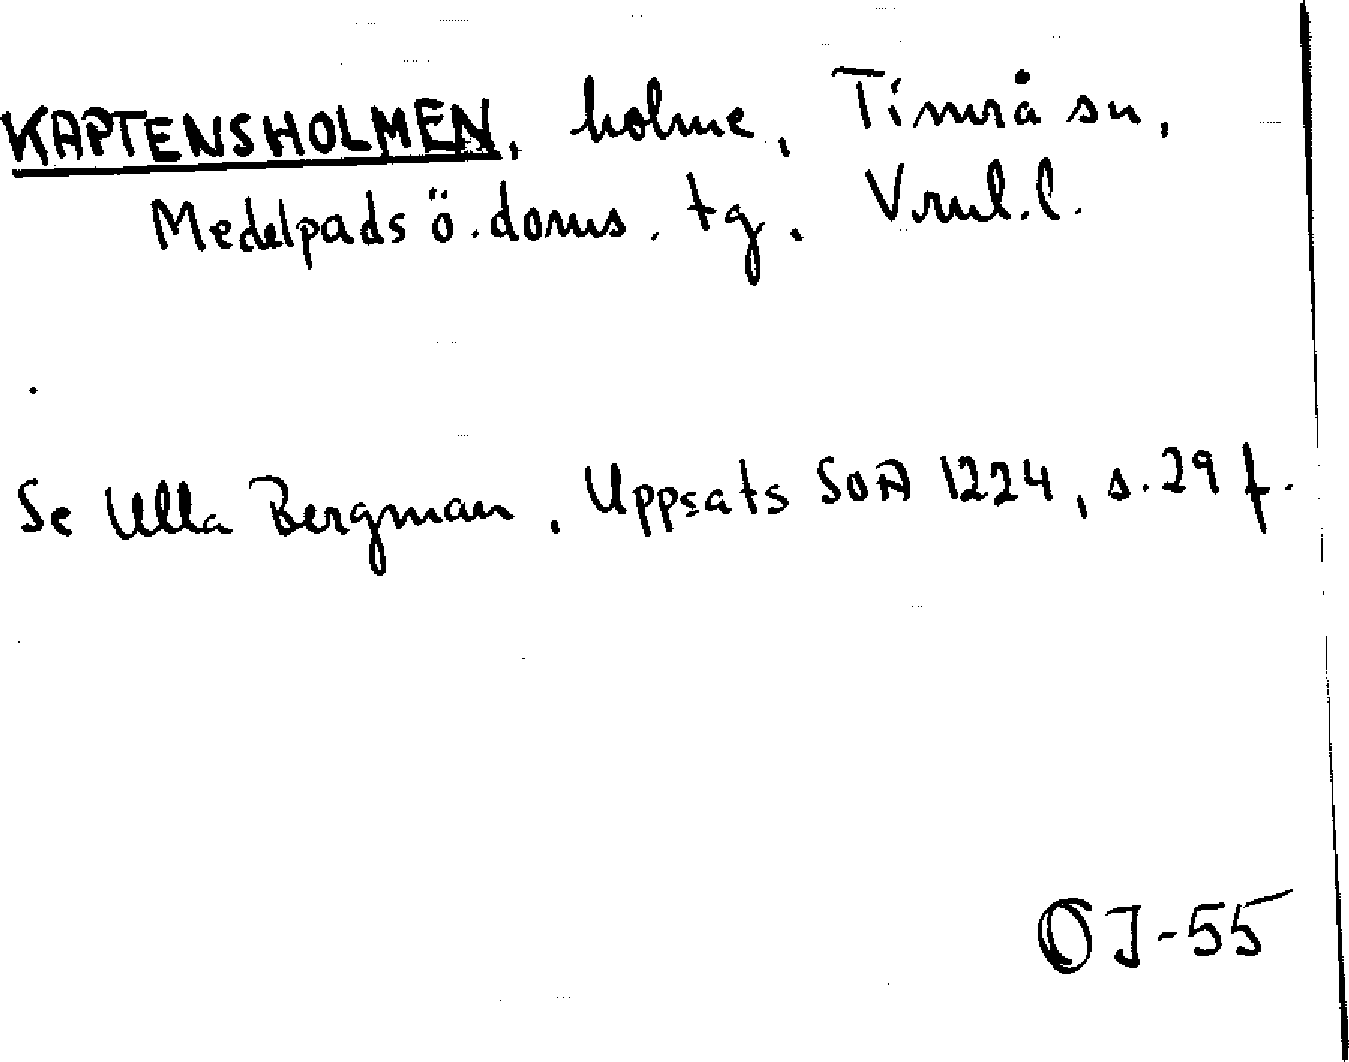 KAPTENSHOLMEN, holme, Timrå sn,
Medelpads ö. doms. tg. Vrnl. l.
Se Ulla Bergman, Uppsats SOA 1224, s. 29 f.
OJ-55